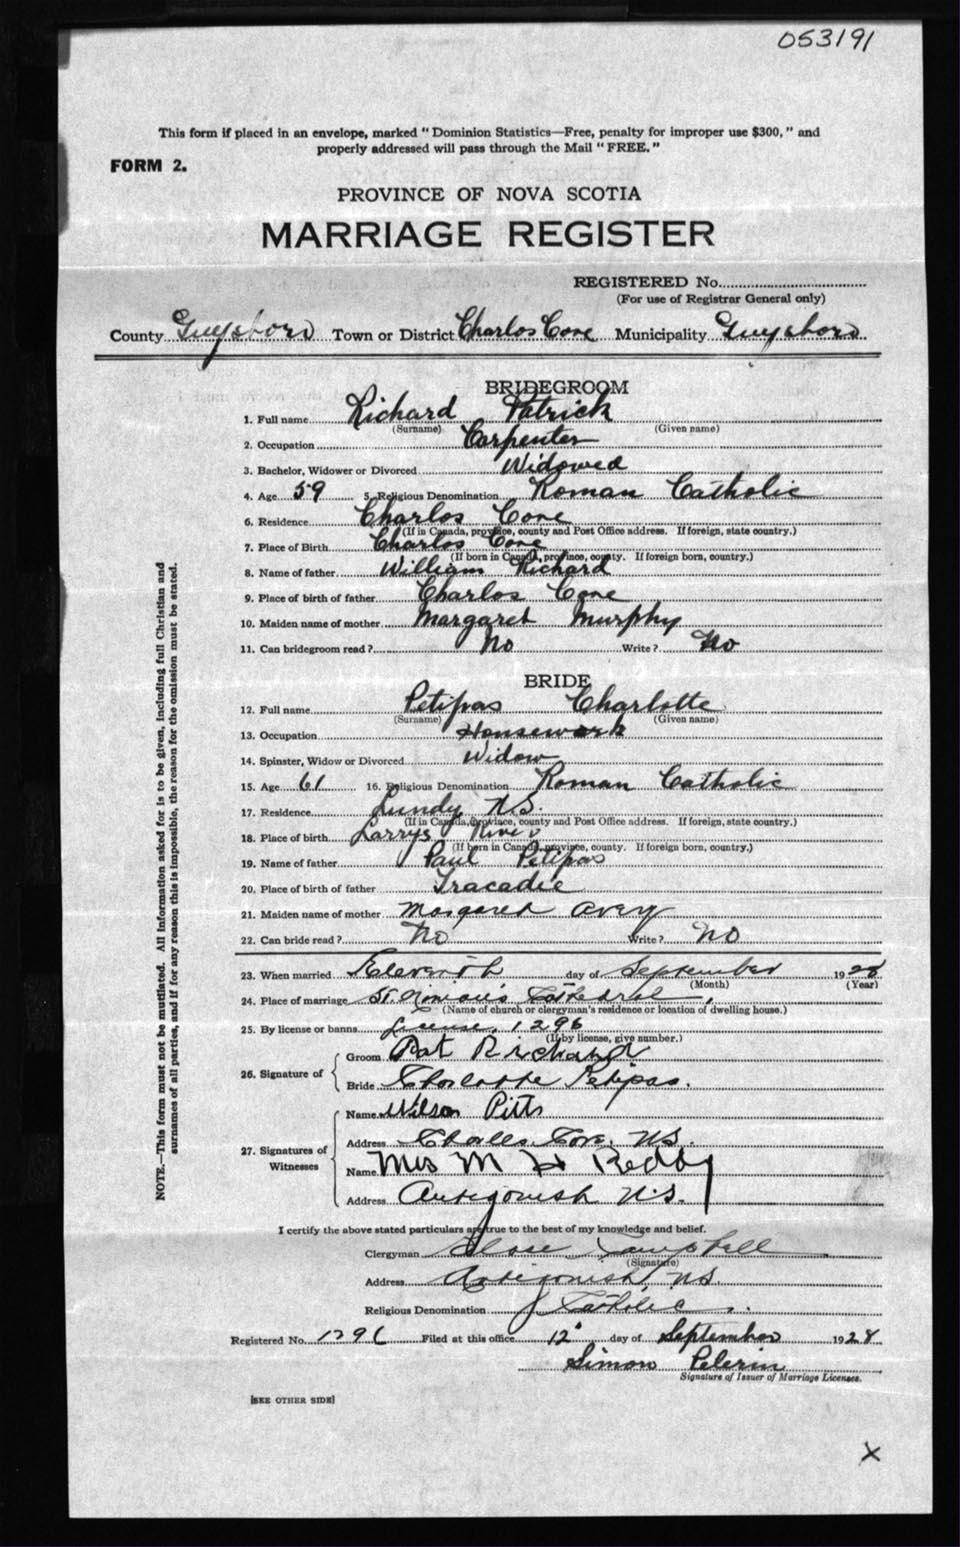 053191
This form if placed in an envelope, marked "Dominion Statistics—Free, penalty for improper use $300," and
properly addressed will pass through the Mail "FREE."
FORM 2.
PROVINCE OF NOVA SCOTIA
MARRIAGE REGISTER
REGISTERED No.
(For use of Registrar General only)
County Guysboro Town or District Charlos Cove Municipality Guysboro
BRIDEGROOM
1. Full name Richard Patrick
(Surname) (Given name)
2. Occupation Carpenter
3. Bachelor, Widower or Divorced Widowed
4. Age 59 5. Religious Denomination Roman Catholic
6. Residence Charlos Cove
(If in Canada, province, county and Post Office address. If foreign, state country.)
7. Place of Birth Charlos Cove
(If born in Canada, province, county. If foreign born, country.)
8. Name of father William Richard
9. Place of birth of father Charlos Cove
10. Maiden name of mother Margaret Murphy
11. Can bridegroom read? No Write? No
BRIDE
12. Full name Petipas Charlotte
(Surname) (Given name)
13. Occupation Housework
14. Spinster, Widow or Divorced Widow
15. Age 61 16. Religious Denomination Roman Catholic
17. Residence Lundy N.S.
(If in Canada, province, county and Post Office address. If foreign, state country.)
18. Place of birth Larrys River
(If born in Canada, province, county. If foreign born, country.)
19. Name of father Paul Petipas
20. Place of birth of father Tracadie
21. Maiden name of mother Margaret Avery
22. Can bride read? No Write? No
23. When married Eleventh day of September 1928
(Month) (Year)
24. Place of marriage St. Ninian's Cathedral
(Name of church or clergyman's residence or location of dwelling house.)
25. By license or banns License, 1296
(If by license, give number.)
26. Signature of
Groom Pat Richard
Bride Charlotte Petipas.
27. Signatures of Witnesses
Name Wilson Pitts
Address Charles Cove, N.S.
Name Mrs M H Reddy
Address Antigonish N.S.
I certify the above stated particulars are true to the best of my knowledge and belief.
Clergyman Campbell
(Signature)
Address Antigonish, N.S.
Religious Denomination Catholic
Registered No. 1296 Filed at this office 12" day of September 1928
Simon Pelerin
Signature of Issuer of Marriage Licenses.
[SEE OTHER SIDE]
X
NOTE.—This form must not be mutilated. All information asked for is to be given, including full Christian and
surnames of all parties, and if for any reason this is impossible, the reason for the omission must be stated.